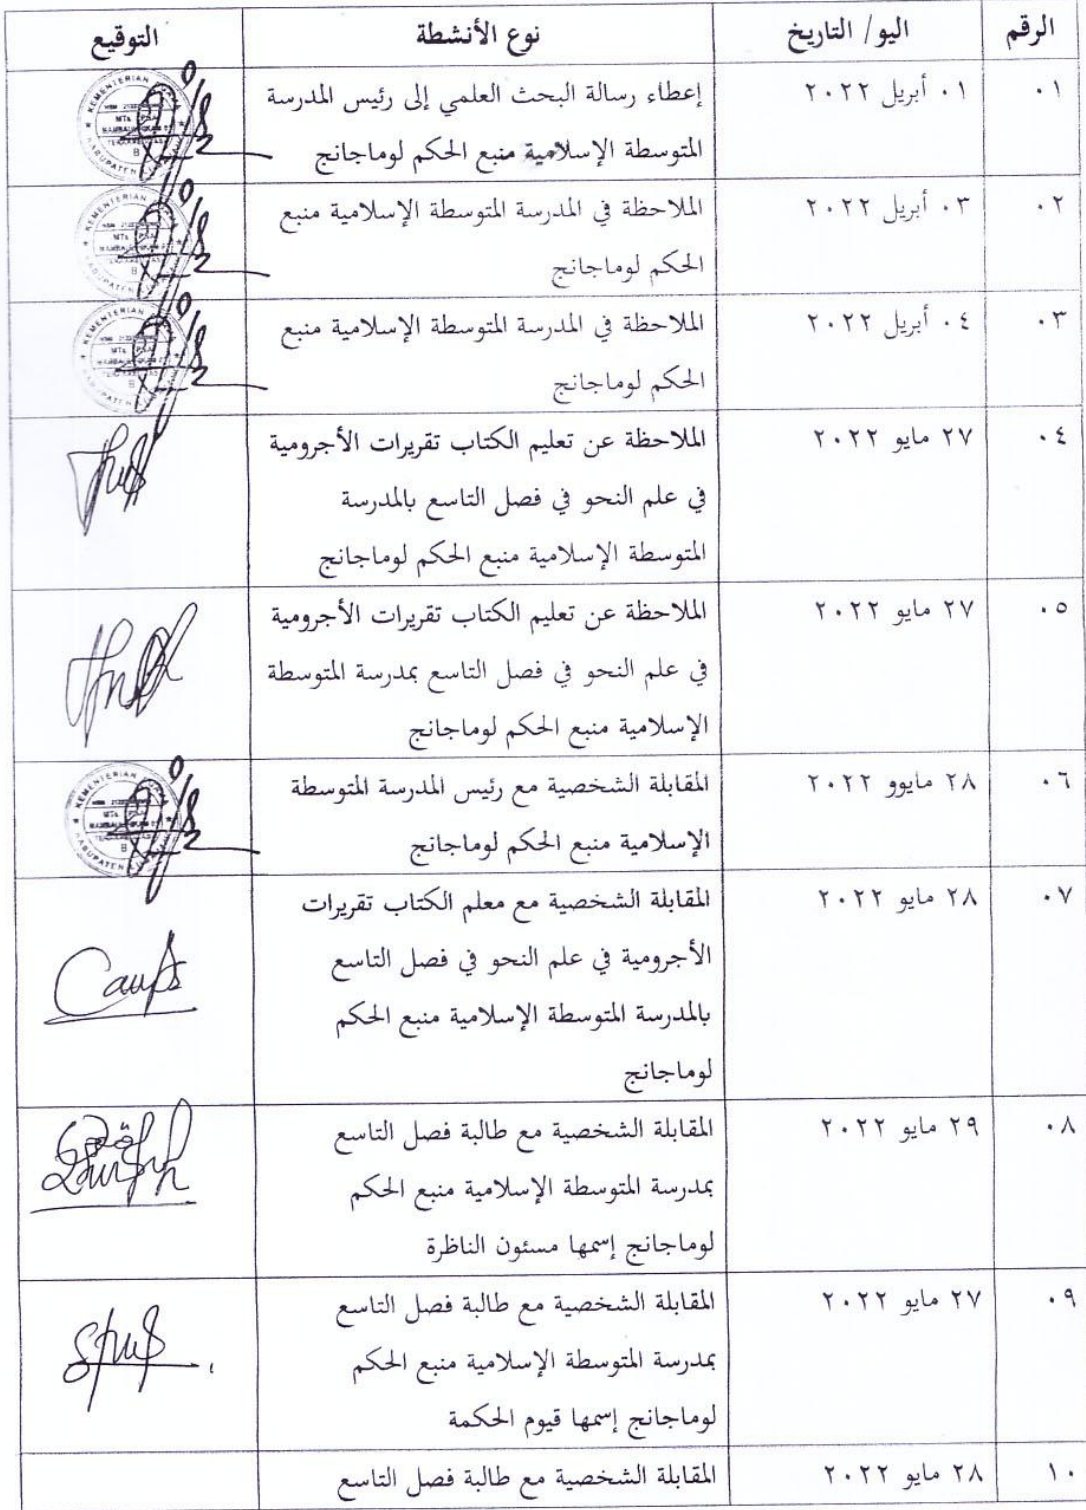 الرقم اليو/ التاريخ نوع الأنشطة التوقيع
٠١ ٠١ أبريل ٢٠٢٢ إعطاء رسالة البحث العلمي إلى رئيس المدرسة
المتوسطة الإسلامية منبع الحكم لوماجانج
٠٢ ٠٣ أبريل ٢٠٢٢ الملاحظة في المدرسة المتوسطة الإسلامية منبع
الحكم لوماجانج
٠٣ ٠٤ أبريل ٢٠٢٢ الملاحظة في المدرسة المتوسطة الإسلامية منبع
الحكم لوماجانج
٠٤ ٢٧ مايو ٢٠٢٢ الملاحظة عن تعليم الكتاب تقريرات الأجرومية
في علم النحو في فصل التاسع بالمدرسة
المتوسطة الإسلامية منبع الحكم لوماجانج
٠٥ ٢٧ مايو ٢٠٢٢ الملاحظة عن تعليم الكتاب تقريرات الأجرومية
في علم النحو في فصل التاسع بمدرسة المتوسطة
الإسلامية منبع الحكم لوماجانج
٠٦ ٢٨ مايوو ٢٠٢٢ المقابلة الشخصية مع رئيس المدرسة المتوسطة
الإسلامية منبع الحكم لوماجانج
٠٧ ٢٨ مايو ٢٠٢٢ المقابلة الشخصية مع معلم الكتاب تقريرات
الأجرومية في علم النحو في فصل التاسع
بالمدرسة المتوسطة الإسلامية منبع الحكم
لوماجانج
٠٨ ٢٩ مايو ٢٠٢٢ المقابلة الشخصية مع طالبة فصل التاسع
بمدرسة المتوسطة الإسلامية منبع الحكم
لوماجانج إسمها مسئون الناظرة
٠٩ ٢٧ مايو ٢٠٢٢ المقابلة الشخصية مع طالبة فصل التاسع
بمدرسة المتوسطة الإسلامية منبع الحكم
لوماجانج إسمها قيوم الحكمة
١٠ ٢٨ مايو ٢٠٢٢ المقابلة الشخصية مع طالبة فصل التاسع
KEMENTERIAN
MTs
KABUPATEN